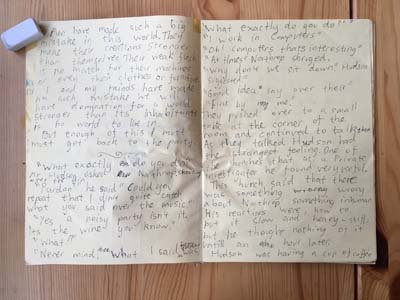 Men have made such a big
mistake in this world. They
make their creations stronger
than themselves. Their weak flesh
is no match for their machines
or even their clothes or furniture
I and my friends have made
no such mistake. We will
have domination for world
stronger than its inhabitants
is no world to live in.
But enough of this I must
get back to the party.
"What exactly do you do
Mr Hudson" asked Northrop
"Pardon" he said "Could you
repeat that I didn't quite catch
what you said over the music."
"Yes a noisy party isn't it.
It's the wine you know."
"What?"
"Never mind, what I said was
"What exactly do you do?"
"I work in computers"
"Oh! computers that's interesting"
"At times" Northrop shruged.
"Why don't we sit down?" Hudson
suggested
"Good idea" say over there
"Fine by me.
They pushed over to a small
table at the corner of the
room and continued to talk
As they talked Hudson had
the strangest feeling. One of
the hunches that as a private
investigator he found very useful.
This hunch said that there
was something wrong
about Northrop, something inhuman
His reactions were, how to
put it, slow and heavy - stiff.
but he thought nothing of it
untill an hour later.
Hudson was having a cup of coffee